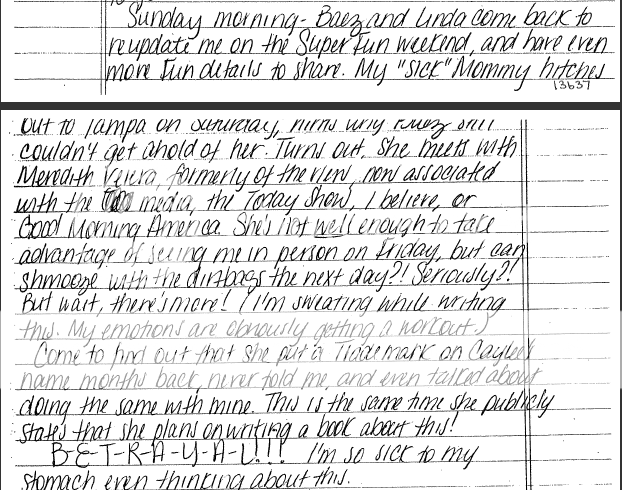 Sunday morning- Baez and Linda come back to
reupdate me on the Super Fun weekend, and have even
more fun details to share. My "SICK" Mommy hitches
13637
out to Tampa on Saturday, hints why Baez still
couldn't get ahold of her. Turns out, she meets with
Meredith Viera, formerly of the View, now associated
with the media, the Today Show, I believe, or
Good Morning America. She's not well enough to take
advantage of seeing me in person on Friday, but can
shmooze with the dirtbags the next day?! Seriously?!
But wait, there's more! (I'm sweating while writing
this. My emotions are obviously getting a workout.)
Come to find out that she put a Trademark on Caylee's
name months back, never told me, and even talked about
doing the same with mine. This is the same time she publicly
states that she plans on writing a book about this!
B-E-T-R-A-Y-A-L!!! I'm so sick to my
stomach even thinking about this.